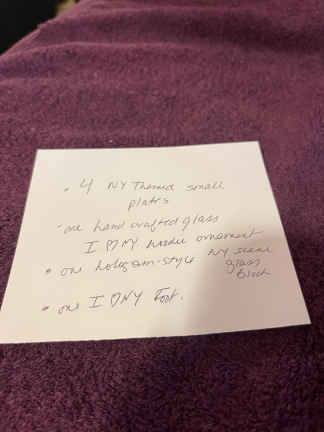 • 4 NY Themed small
plates
• one hand crafted glass
I ♡ NY hoodie ornament
• one hologram-style NY scene
glass
Block
• one I ♡ NY Foot.